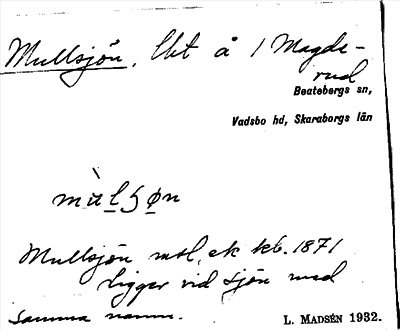 Mullsjön, lht å 1 Magde-
rud
Beatebergs sn,
Vadsbo hd, Skaraborgs län
Mullsjön msl, ek kb. 1871
ligger vid sjön med
samma namn.
L. MADSÉN 1932.